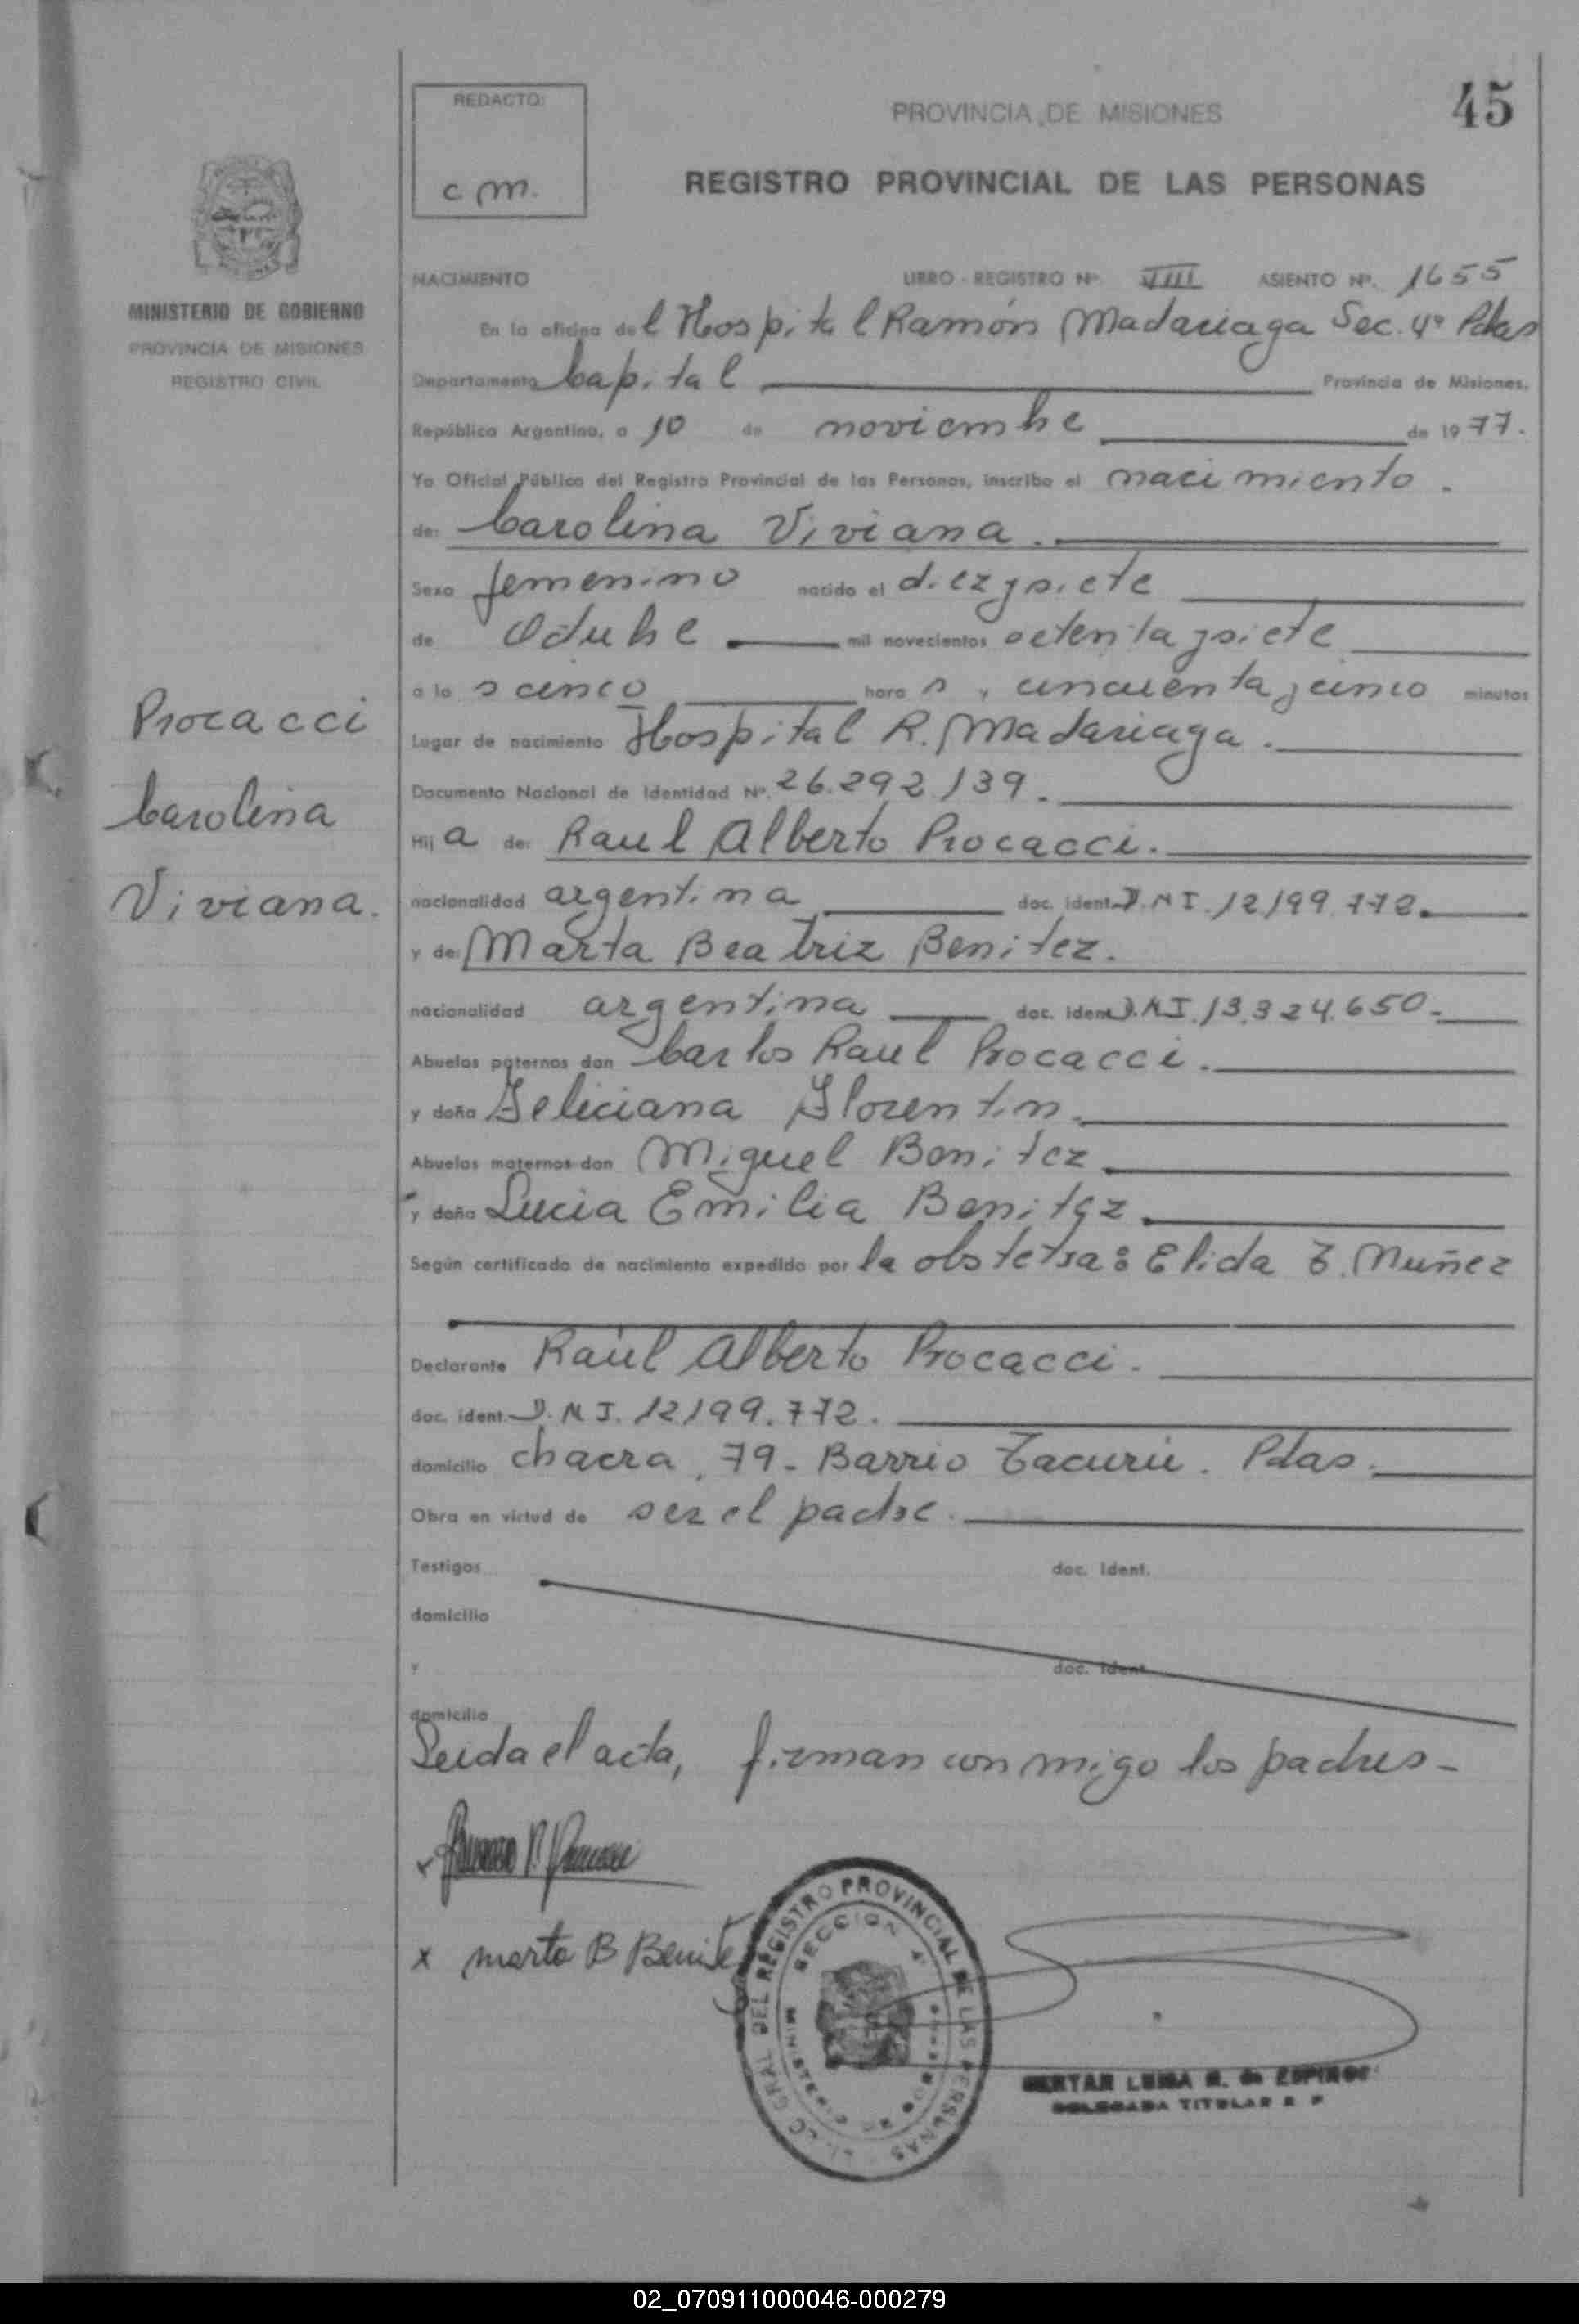 45
REDACTO:
c m.
PROVINCIA DE MISIONES
REGISTRO PROVINCIAL DE LAS PERSONAS
MINISTERIO DE GOBIERNO
PROVINCIA DE MISIONES
REGISTRO CIVIL
NACIMIENTO LIBRO - REGISTRO Nº. VIII ASIENTO Nº. 1655
En la oficina del Hospital Ramón Madariaga Sec. 4º Pdas
Departamento Capital Provincia de Misiones.
República Argentina, a 10 de noviembre de 1977.
Yo Oficial Público del Registro Provincial de las Personas, inscribo el nacimiento.
de: Carolina Viviana.
Sexo femenino nacido el diezysiete
de Octubre mil novecientos setentaysiete
a las cinco horas y cincuentaycinco minutos
Lugar de nacimiento Hospital R. Madariaga.
Documento Nacional de Identidad Nº. 26.292.139.
Hija de: Raul Alberto Procacci.
nacionalidad argentina doc. ident. D.N.I. 12199.772.
y de: Marta Beatriz Benitez.
nacionalidad argentina doc. ident. D.N.I. 13.324.650.
Abuelos paternos don Carlos Raul Procacci.
y doña Feliciana Florentin.
Abuelos maternos don Miguel Benitez
y doña Lucia Emilia Benitez
Según certificado de nacimiento expedido por la obstetra: Elida T. Nuñez
Declarante Raúl Alberto Procacci.
doc. ident. D.N.I. 12199.772.
domicilio chacra 79 - Barrio Tacurú. Pdas.
Obra en virtud de ser el padre.
Testigos doc. Ident.
domicilio
y doc. Ident.
domicilio
Leida el acta, firman conmigo los padres -
Procacci
Carolina
Viviana.
x
x marta B Benitez
DEL REGISTRO PROVINCIAL DE LAS PERSONAS
SECCION 4ª
MINISTERIO
LUISA R. de ESPINOS
DELEGADA TITULAR R P
02_070911000046-000279